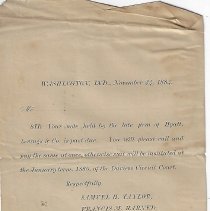 WASHINGTON, IND., November 25, 1885.
M
SIR: Your note held by the late firm of Hyatt,
& Co. is past due. You will please call and
pay the same at once, otherwise suit will be instituted at
the January term, 1886, of the Daviess Circuit Court.
Respectfully
SAMUEL H. TAYLOR,
FRANCIS M. HARNED,